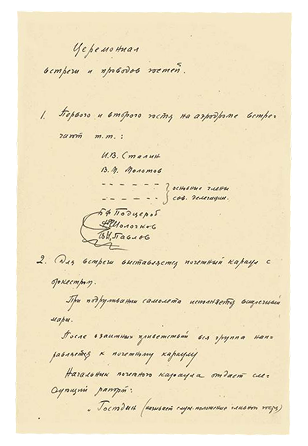 Церемониал
встречи и проводов гостей.
1. Первого и второго гостя на аэродроме встре-
чают т.т.:
И.В. Сталин
В.М. Молотов
основные члены
сов. делегации.
Б.Ф. Подцероб
Молочков
В.Н. Павлов
2. Для встречи выставляется почетный караул с
оркестром.
При подруливании самолета исполняется встречный
марш.
После взаимных приветствий вся группа нап-
равляется к почетному караулу
Начальник почетного караула отдает сле-
дующий рапорт:
„Господин (называет